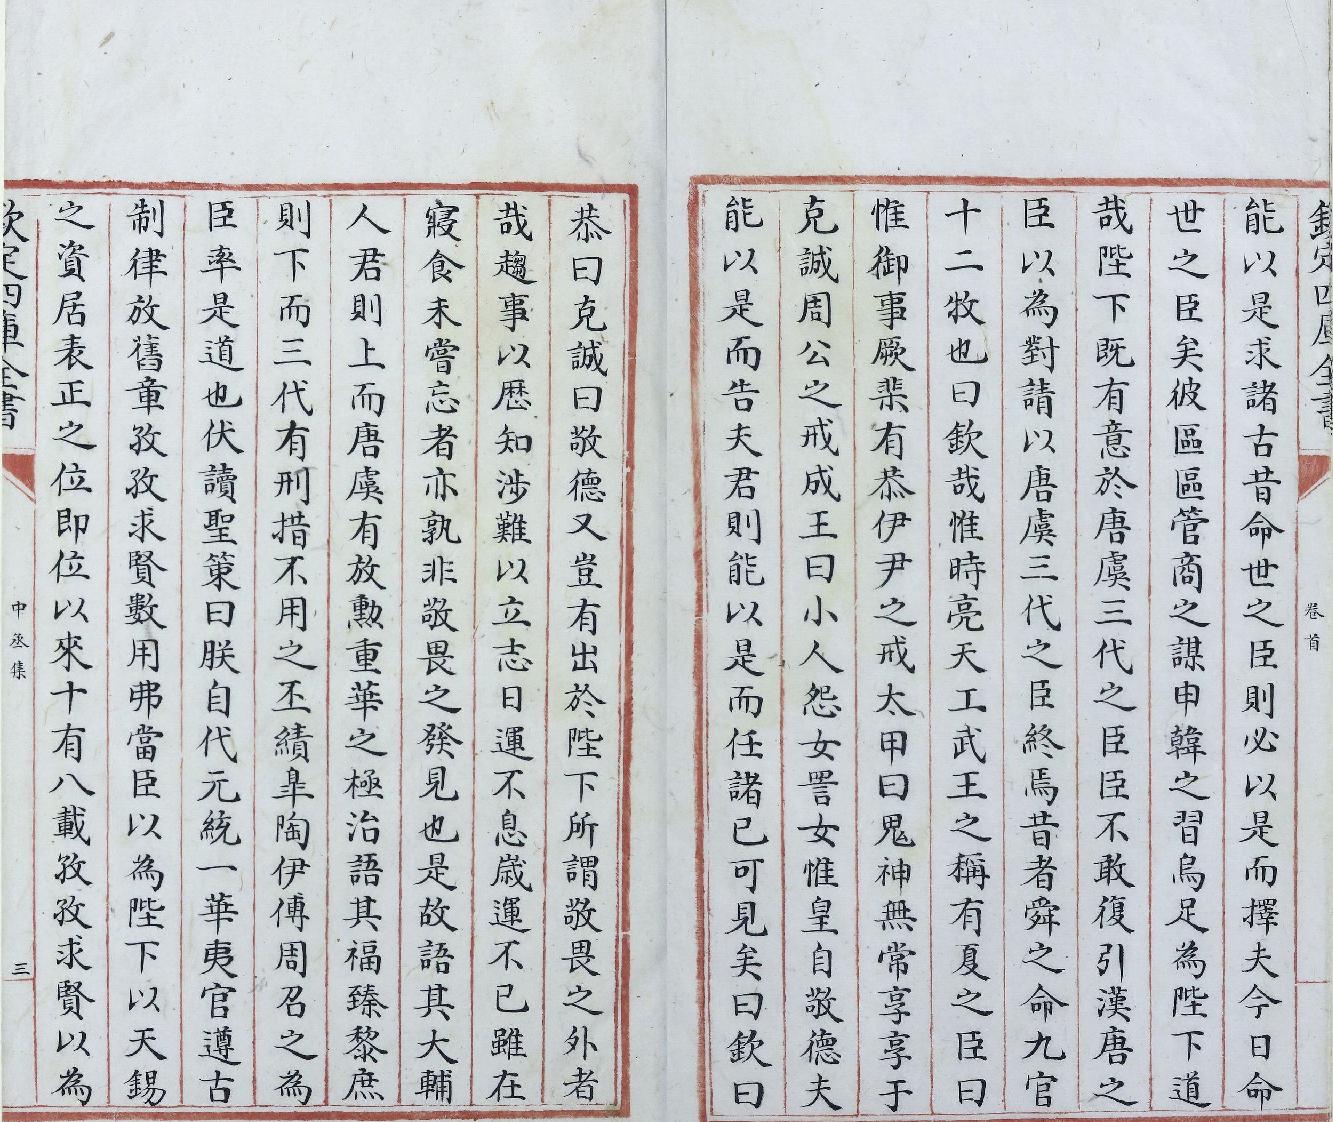 欽定四庫全書
卷首
能以是求諸古昔命世之臣則必以是而擇夫今日命
世之臣矣彼區區管商之謀申韓之習烏足為陛下道
哉陛下既有意於唐虞三代之臣臣不敢復引漢唐之
臣以為對請以唐虞三代之臣終焉昔者舜之命九官
十二牧也曰欽哉惟時亮天工武王之稱有夏之臣曰
惟御事厥棐有恭伊尹之戒太甲曰鬼神無常享享于
克誠周公之戒成王曰小人怨女詈女惟皇自敬德夫
能以是而告夫君則能以是而任諸已可見矣曰欽曰
恭曰克誠曰敬德又豈有出於陛下所謂敬畏之外者
哉趨事以歴知涉難以立志日運不息嵗運不已雖在
寢食未嘗忘者亦孰非敬畏之發見也是故語其大輔
人君則上而唐虞有放勲重華之極治語其福臻黎庶
則下而三代有刑措不用之丕績臯陶伊傅周召之為
臣率是道也伏讀聖策曰朕自代元統一華夷官遵古
制律放舊章孜孜求賢數用弗當臣以為陛下以天錫
之資居表正之位即位以來十有八載孜孜求賢以為
欽定四庫全書
中丞集
三